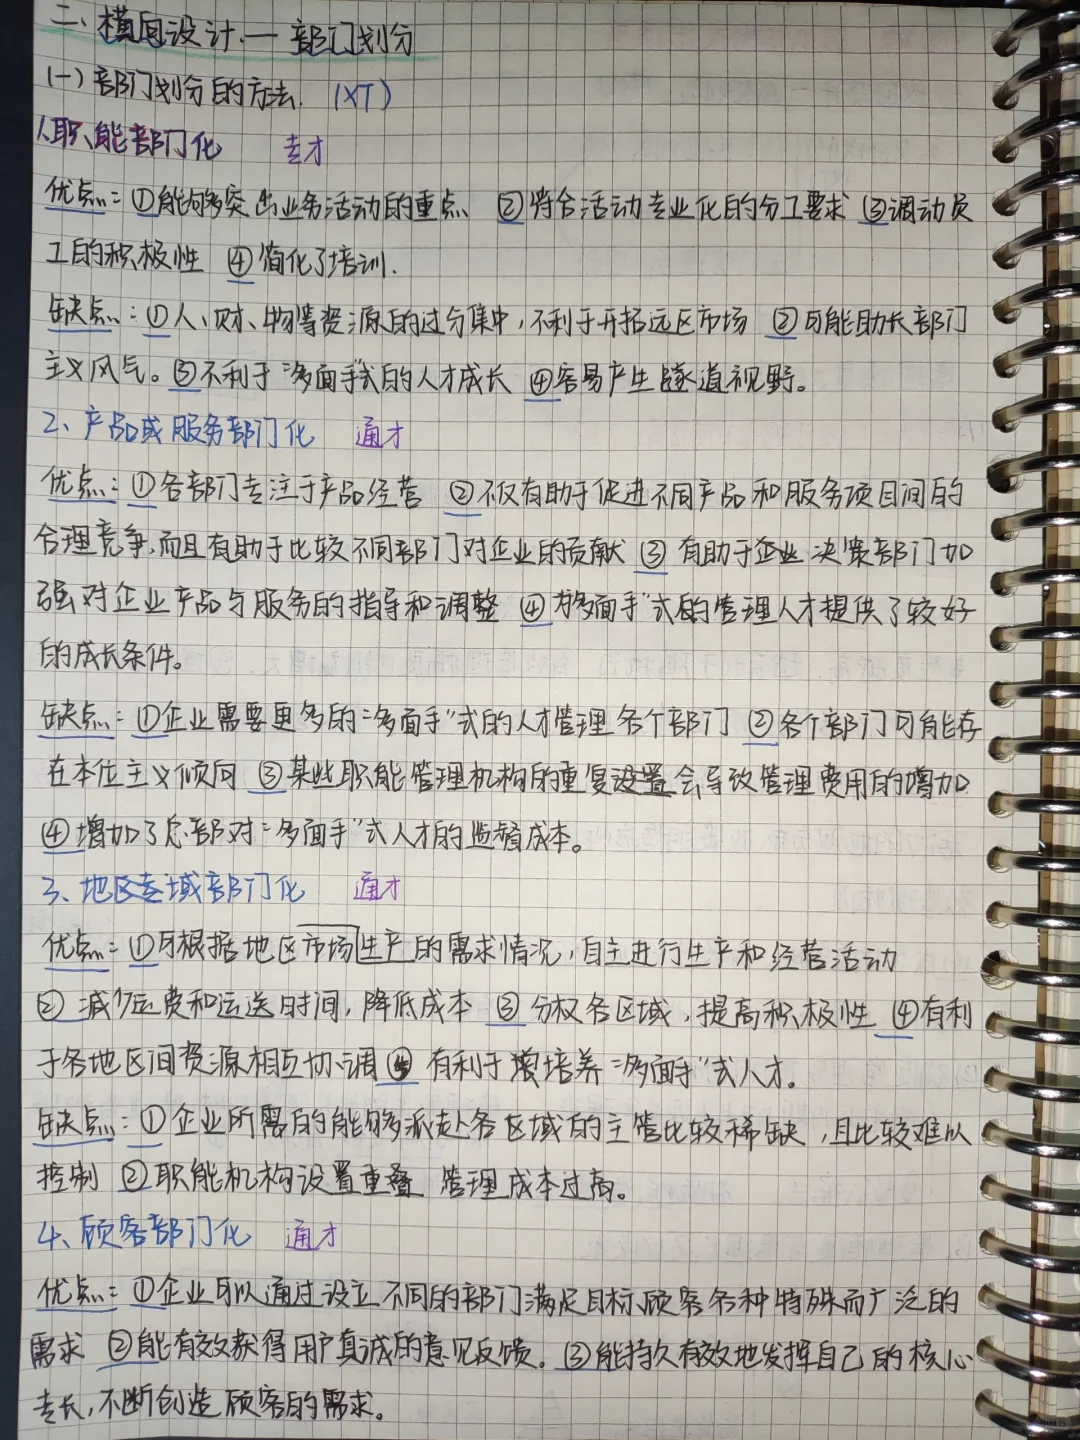 二、横向设计.一 部门划分
(一)部门划分的方法. (XT)
1.职能部门化 专才
优点:①能够突出业务活动的重点、②符合活动专业化的分工要求 ③调动员
工的积极性 ④简化了培训.
缺点:①人、财、物等资源的过分集中,不利于开拓远区市场 ②可能助长部门
主义风气。③不利于“多面手”式的人才成长 ④容易产生隧道视野。
2、产品或服务部门化 通才
优点:①各部门专注于产品经营 ②不仅有助于促进不同产品和服务项目间的
合理竞争,而且有助于比较不同部门对企业的贡献 ③有助于企业决策部门加
强对企业产品与服务的指导和调整 ④为“多面手”式的管理人才提供了较好
的成长条件。
缺点:①企业需要更多的“多面手”式的人才管理各个部门 ②各个部门可能存
在本位主义倾向 ③某些职能管理机构的重复设置会导致管理费用的增加
④增加了总部对“多面手”式人才的监督成本。
3、地区区域部门化 通才
优点:①可根据地区市场生产的需求情况,自主进行生产和经营活动
②减少运费和运送时间,降低成本 ③分权各区域,提高积极性 ④有利
于各地区间资源相互协调⑤有利于增培养“多面手”式人才.
缺点:①企业所需的能够派赴各区域的主管比较稀缺,且比较难以
控制 ②职能机构设置重叠 管理成本过高。
4、顾客部门化 通才
优点:①企业可以通过设立不同的部门满足目标顾客各种特殊而广泛的
需求 ②能有效获得用户真诚的意见反馈。③能持久有效地发挥自己的核心
专长,不断创造顾客的需求。